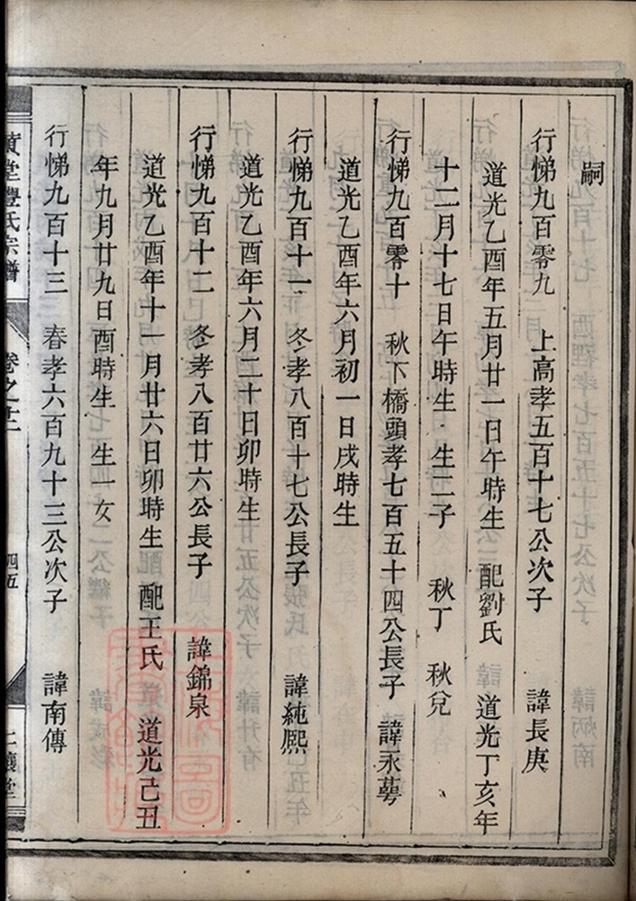 嗣
行悌九百零九　上高孝五百十七公次子　諱長庚
道光乙酉年五月廿一日午時生　配劉氏　道光丁亥年
十二月十七日午時生　生二子　秋丁　秋兌
行悌九百零十　秋下橋頭孝七百五十四公長子　諱永蕚
道光乙酉年六月初一日戌時生
行悌九百十一　冬孝八百十七公長子　諱純熙
道光乙酉年六月二十日卯時生
行悌九百十二　冬孝八百廿六公長子　諱錦泉
道光乙酉年十一月廿六日卯時生　配王氏　道光己丑
年九月廿九日酉時生　生一女
行悌九百十三　春孝六百九十三公次子　諱南傳
堂豊氏宗譜　卷之　四五　堂